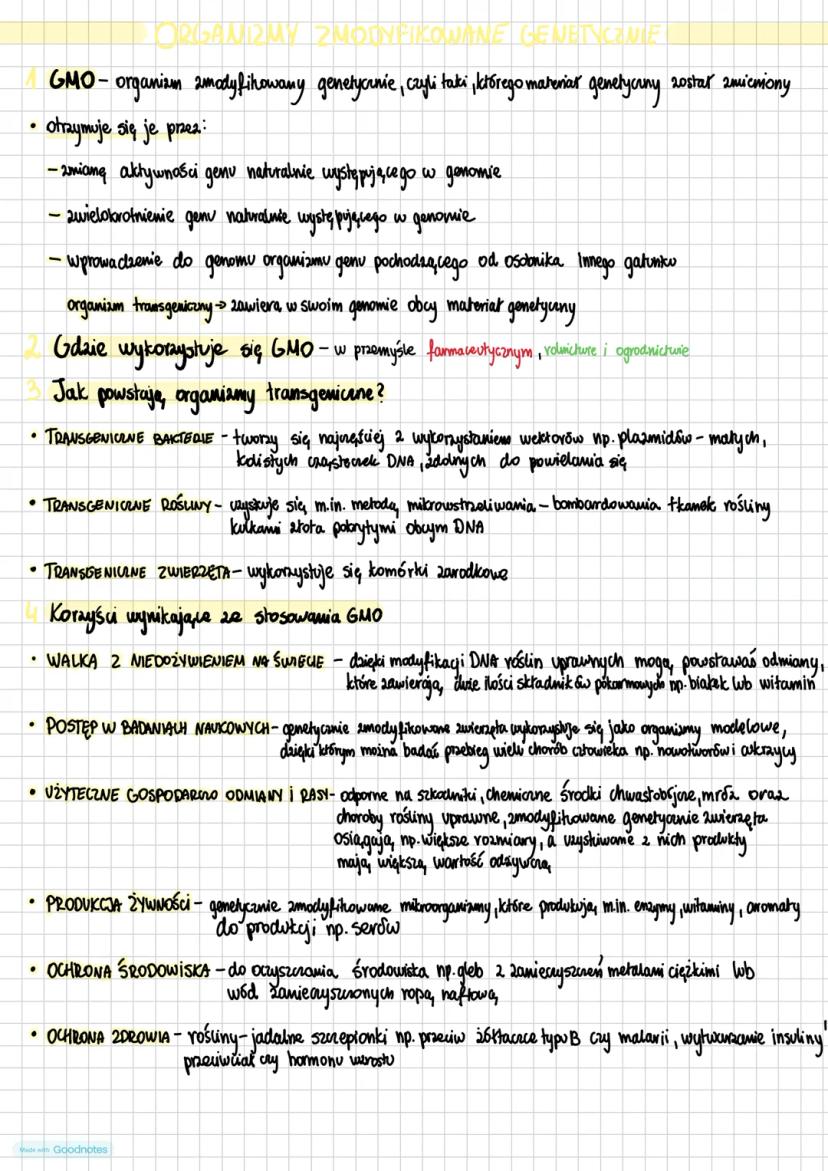 ORGANIZMY ZMODYFIKOWANE GENETYCZNIE
1 GMO – organizm zmodyfikowany genetycznie, czyli taki, którego materiał genetyczny został zmieniony
• otrzymuje się je przez:
– zmianę aktywności genu naturalnie występującego w genomie
– zwielokrotnienie genu naturalnie występującego w genomie
– wprowadzenie do genomu organizmu genu pochodzącego od osobnika innego gatunku
organizm transgeniczny → zawiera w swoim genomie obcy materiał genetyczny
2 Gdzie wykorzystuje się GMO – w przemyśle farmaceutycznym, rolnictwie i ogrodnictwie
3 Jak powstają organizmy transgeniczne?
• TRANSGENICZNE BAKTERIE – tworzy się najczęściej z wykorzystaniem wektorów np. plazmidów – małych,
kolistych cząsteczek DNA, zdolnych do powielania się
• TRANSGENICZNE ROŚLINY – uzyskuje się m.in. metodą mikrowstrzeliwania – bombardowania tkanek rośliny
kulkami złota pokrytymi obcym DNA
• TRANSGENICZNE ZWIERZĘTA – wykorzystuje się komórki zarodkowe
4 Korzyści wynikające ze stosowania GMO
• WALKA Z NIEDOŻYWIENIEM NA ŚWIECIE – dzięki modyfikacji DNA roślin uprawnych mogą powstawać odmiany,
które zawierają duże ilości składników pokarmowych np. białek lub witamin
• POSTĘP W BADANIACH NAUKOWYCH – genetycznie zmodyfikowane zwierzęta wykorzystuje się jako organizmy modelowe,
dzięki którym można badać przebieg wielu chorób człowieka np. nowotworów i cukrzycy
• UŻYTECZNE GOSPODARCZO ODMIANY I RASY – odporne na szkodniki, chemiczne środki chwastobójcze, mróz oraz
choroby rośliny uprawne, zmodyfikowane genetycznie zwierzęta
osiągają np. większe rozmiary, a uzyskiwane z nich produkty
mają większą wartość odżywczą
• PRODUKCJA ŻYWNOŚCI – genetycznie zmodyfikowane mikroorganizmy, które produkują m.in. enzymy, witaminy, aromaty
do produkcji np. serów
• OCHRONA ŚRODOWISKA – do oczyszczania środowiska np. gleb z zanieczyszczeń metalami ciężkimi lub
wód zanieczyszczonych ropą naftową
• OCHRONA ZDROWIA – rośliny – jadalne szczepionki np. przeciw żółtaczce typu B czy malarii, wytwarzanie insuliny,
przeciwciał czy hormonu wzrostu
Made with Goodnotes